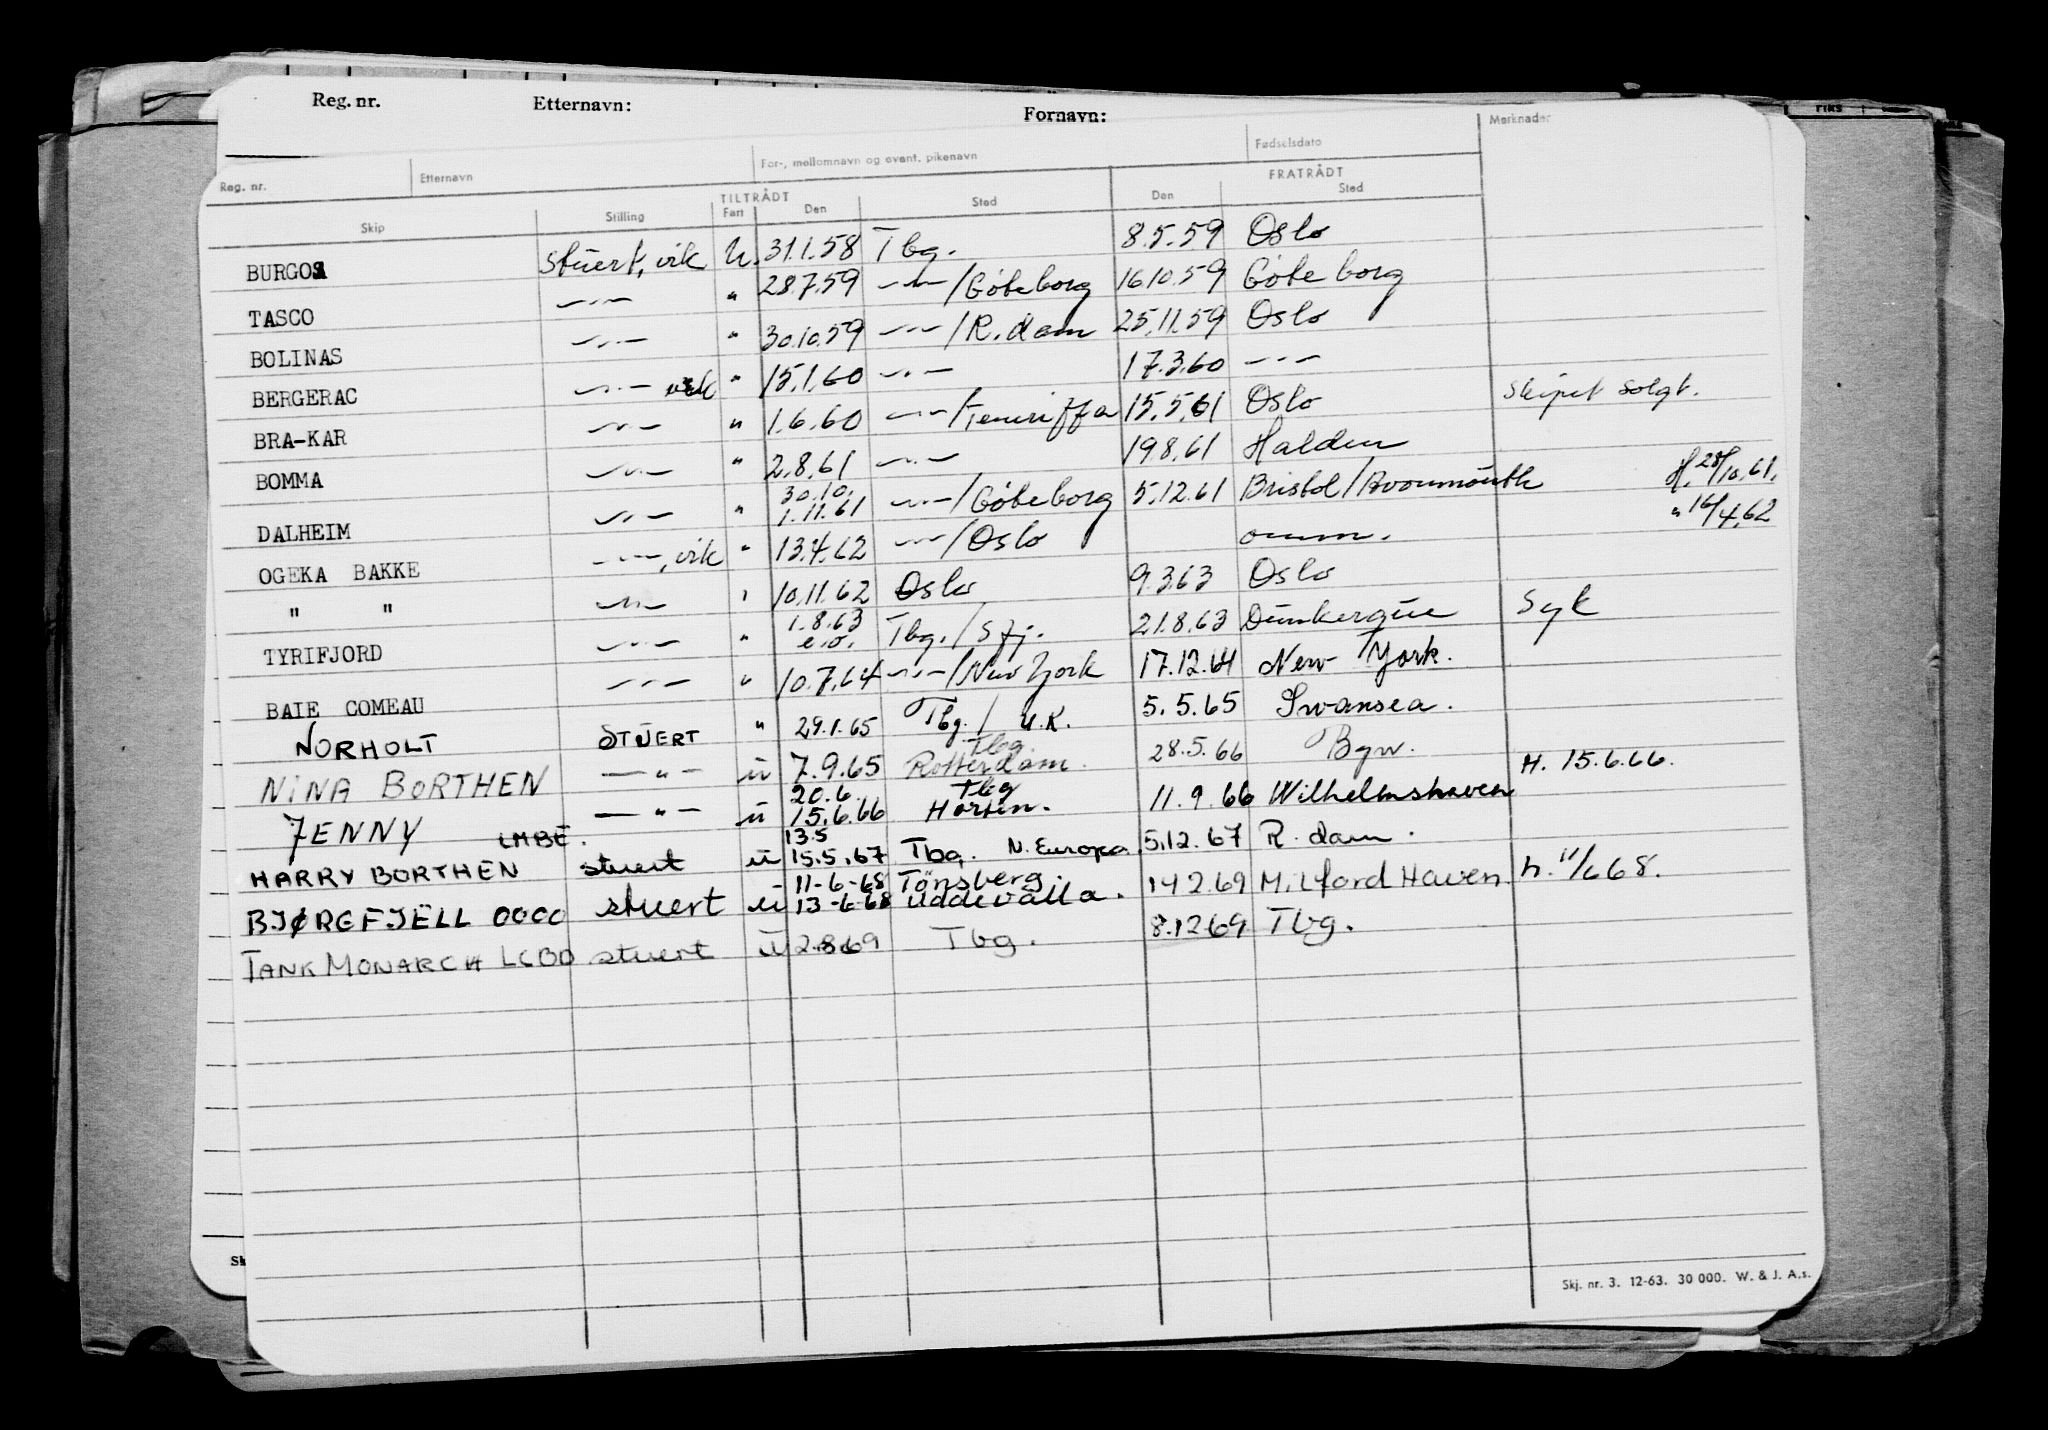 Reg. nr. Etternavn: Fornavn:
Reg. nr. Etternavn For-, mellomnavn og event. pikenavn Fødselsdato Merknader
TILTRÅDT FRATRÅDT
Skip Stilling Fart Den Sted Den Sted
BURGOS stuert, vik U. 31.1.58 Tbg. 8.5.59 Oslo
TASCO —"— " 28.7.59 —"—/Göteborg 16.10.59 Göteborg
BOLINAS —"— " 30.10.59 —"—/R.dam 25.11.59 Oslo
BERGERAC —"— vik " 15.1.60 —"— 17.3.60 —"—
BRA-KAR —"— " 1.6.60 —"—/Teneriffa 15.5.61 Oslo Skipet solgt.
BOMMA —"— " 2.8.61 —"— 19.8.61 Halden
DALHEIM —"— " 30.10. 1.11.61 —"—/Göteborg 5.12.61 Bristol/Avonmouth H. 28/10.61.
OGEKA BAKKE —"—, vik " 13.4.62 —"—/Oslo omm. " 16/4.62
" " —"— " 10.11.62 Oslo 9.3.63 Oslo
TYRIFJORD —"— " 1.8.63 e.o. Tbg./Sfj. 21.8.63 Dunkerque Syk
BAIE COMEAU —"— " 10.7.64 —"—/New York 17.12.64 New York.
NORHOLT STUERT " 29.1.65 Tbg./U.K. 5.5.65 Swansea.
NINA BORTHEN —"— u 7.9.65 Tbg. Rotterdam. 28.5.66 Bgw.
JENNY LMBE. —"— u 20.6 15.6.66 Tbg Horten. 11.9.66 Wilhelmshaven H. 15.6.66.
HARRY BORTHEN stuert u 13.5 15.5.67 Tbg. N. Europa 5.12.67 R. dam.
BJØRGFJELL OOCO stuert u 11-6-68 13-6-68 Tönsberg. Uddevalla. 14.2.69 Milford Haven h. 11/6 68.
TANK MONARCH LCBD stuert u 2.8.69 Tbg. 8.12.69 Tbg.
Skj. nr. 3. 12-63. 30 000. W. & J. A.s.